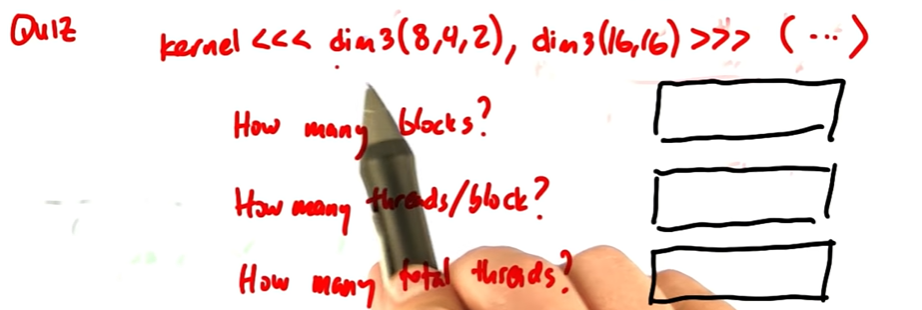 Quiz
kernel <<< dim3(8,4,2), dim3(16,16) >>> (...)
How many blocks?
How many threads/block?
How many total threads?